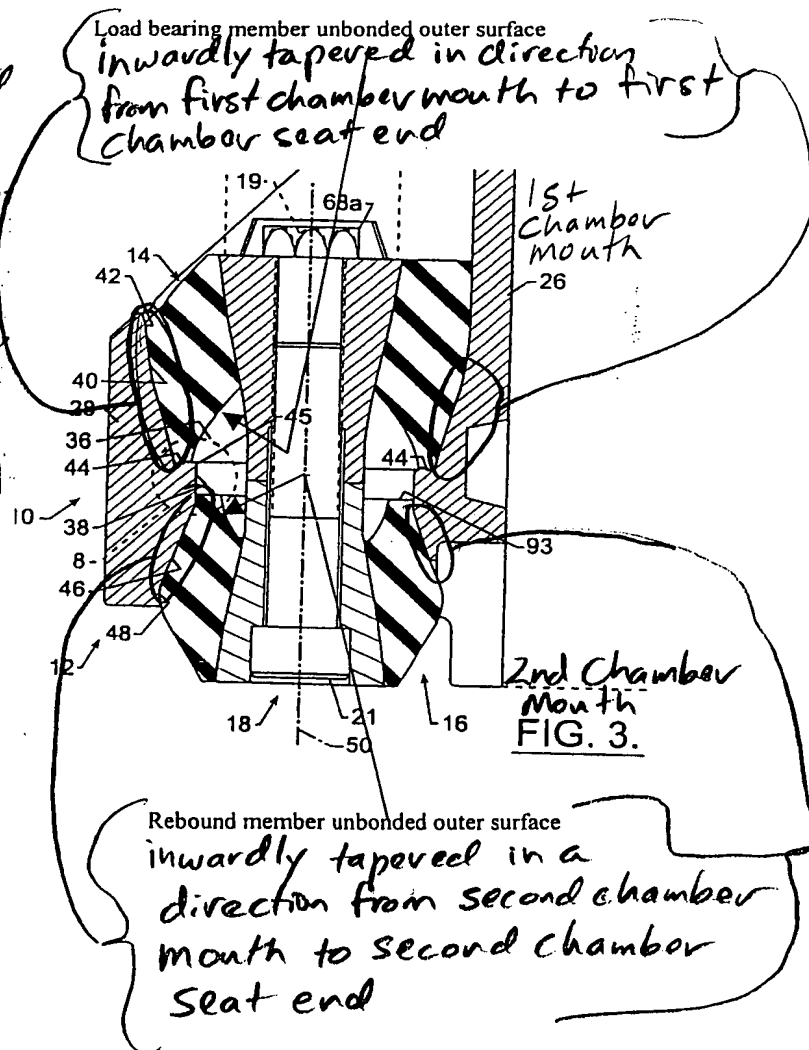 Load bearing member unbonded outer surface
inwardly tapered in direction
from first chamber mouth to first
chamber seat end
19
68a
1st
chamber
mouth
14
42
26
40
28
45
36
44
44
10
38
93
8
46
48
12
2nd Chamber
Mouth
18
21
16
50
FIG. 3.
Rebound member unbonded outer surface
inwardly tapered in a
direction from second chamber
mouth to second chamber
seat end